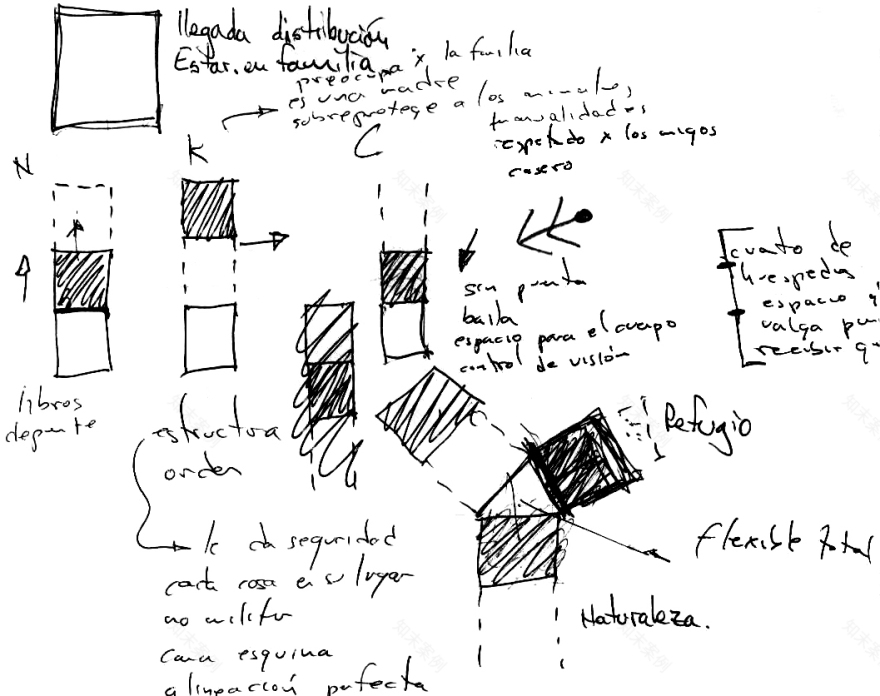 llegada distribución
Estar. en familia
preocupa x la familia
es una madre
sobreprotege a los animales
manualidades
respetado x los amigos
casero
N
K
C
sin puerta
baila
espacio para el cuerpo
control de visión
cuato de
huespedes
espacio q
valga
recibir
libros
deporte
estructura
orden
le da seguridad
cada cosa en su lugar
no militar
cama esquina
alineación perfecta
Refugio
flexible total
Naturaleza.